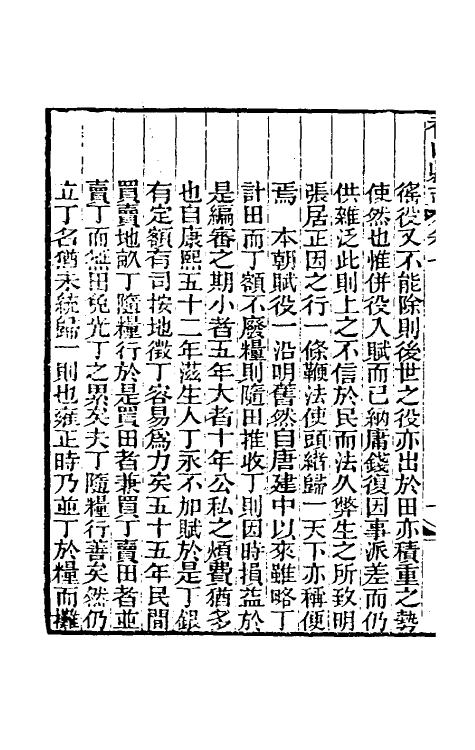 徭役又不能除則後世之役亦出於田亦積重之勢
使然也惟併役入賦而已納庸錢復因事派差而仍
供雜泛此則上之不信於民而法久弊生之所致明
張居正因之行一條鞭法使頭緒歸一天下亦稱便
焉 本朝賦役一沿明舊然自唐建中以來雖略丁
計田而丁額不廢糧則隨田推收丁則因時損益於
是編審之期小者五年大者十年公私之煩費猶多
也自康熙五十二年滋生人丁永不加賦於是丁銀
有定額有司按地徵丁容易爲力矣五十五年民間
買賣地畝丁隨糧行於是買田者兼買丁賣田者並
賣丁而無田免光丁之累矣夫丁隨糧行善矣然仍
立丁名猶未統歸一則也雍正時乃並丁於糧而攤